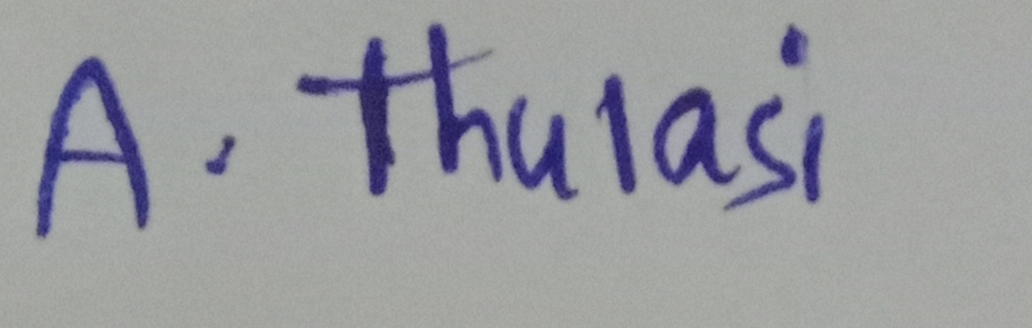 A. Thulasi